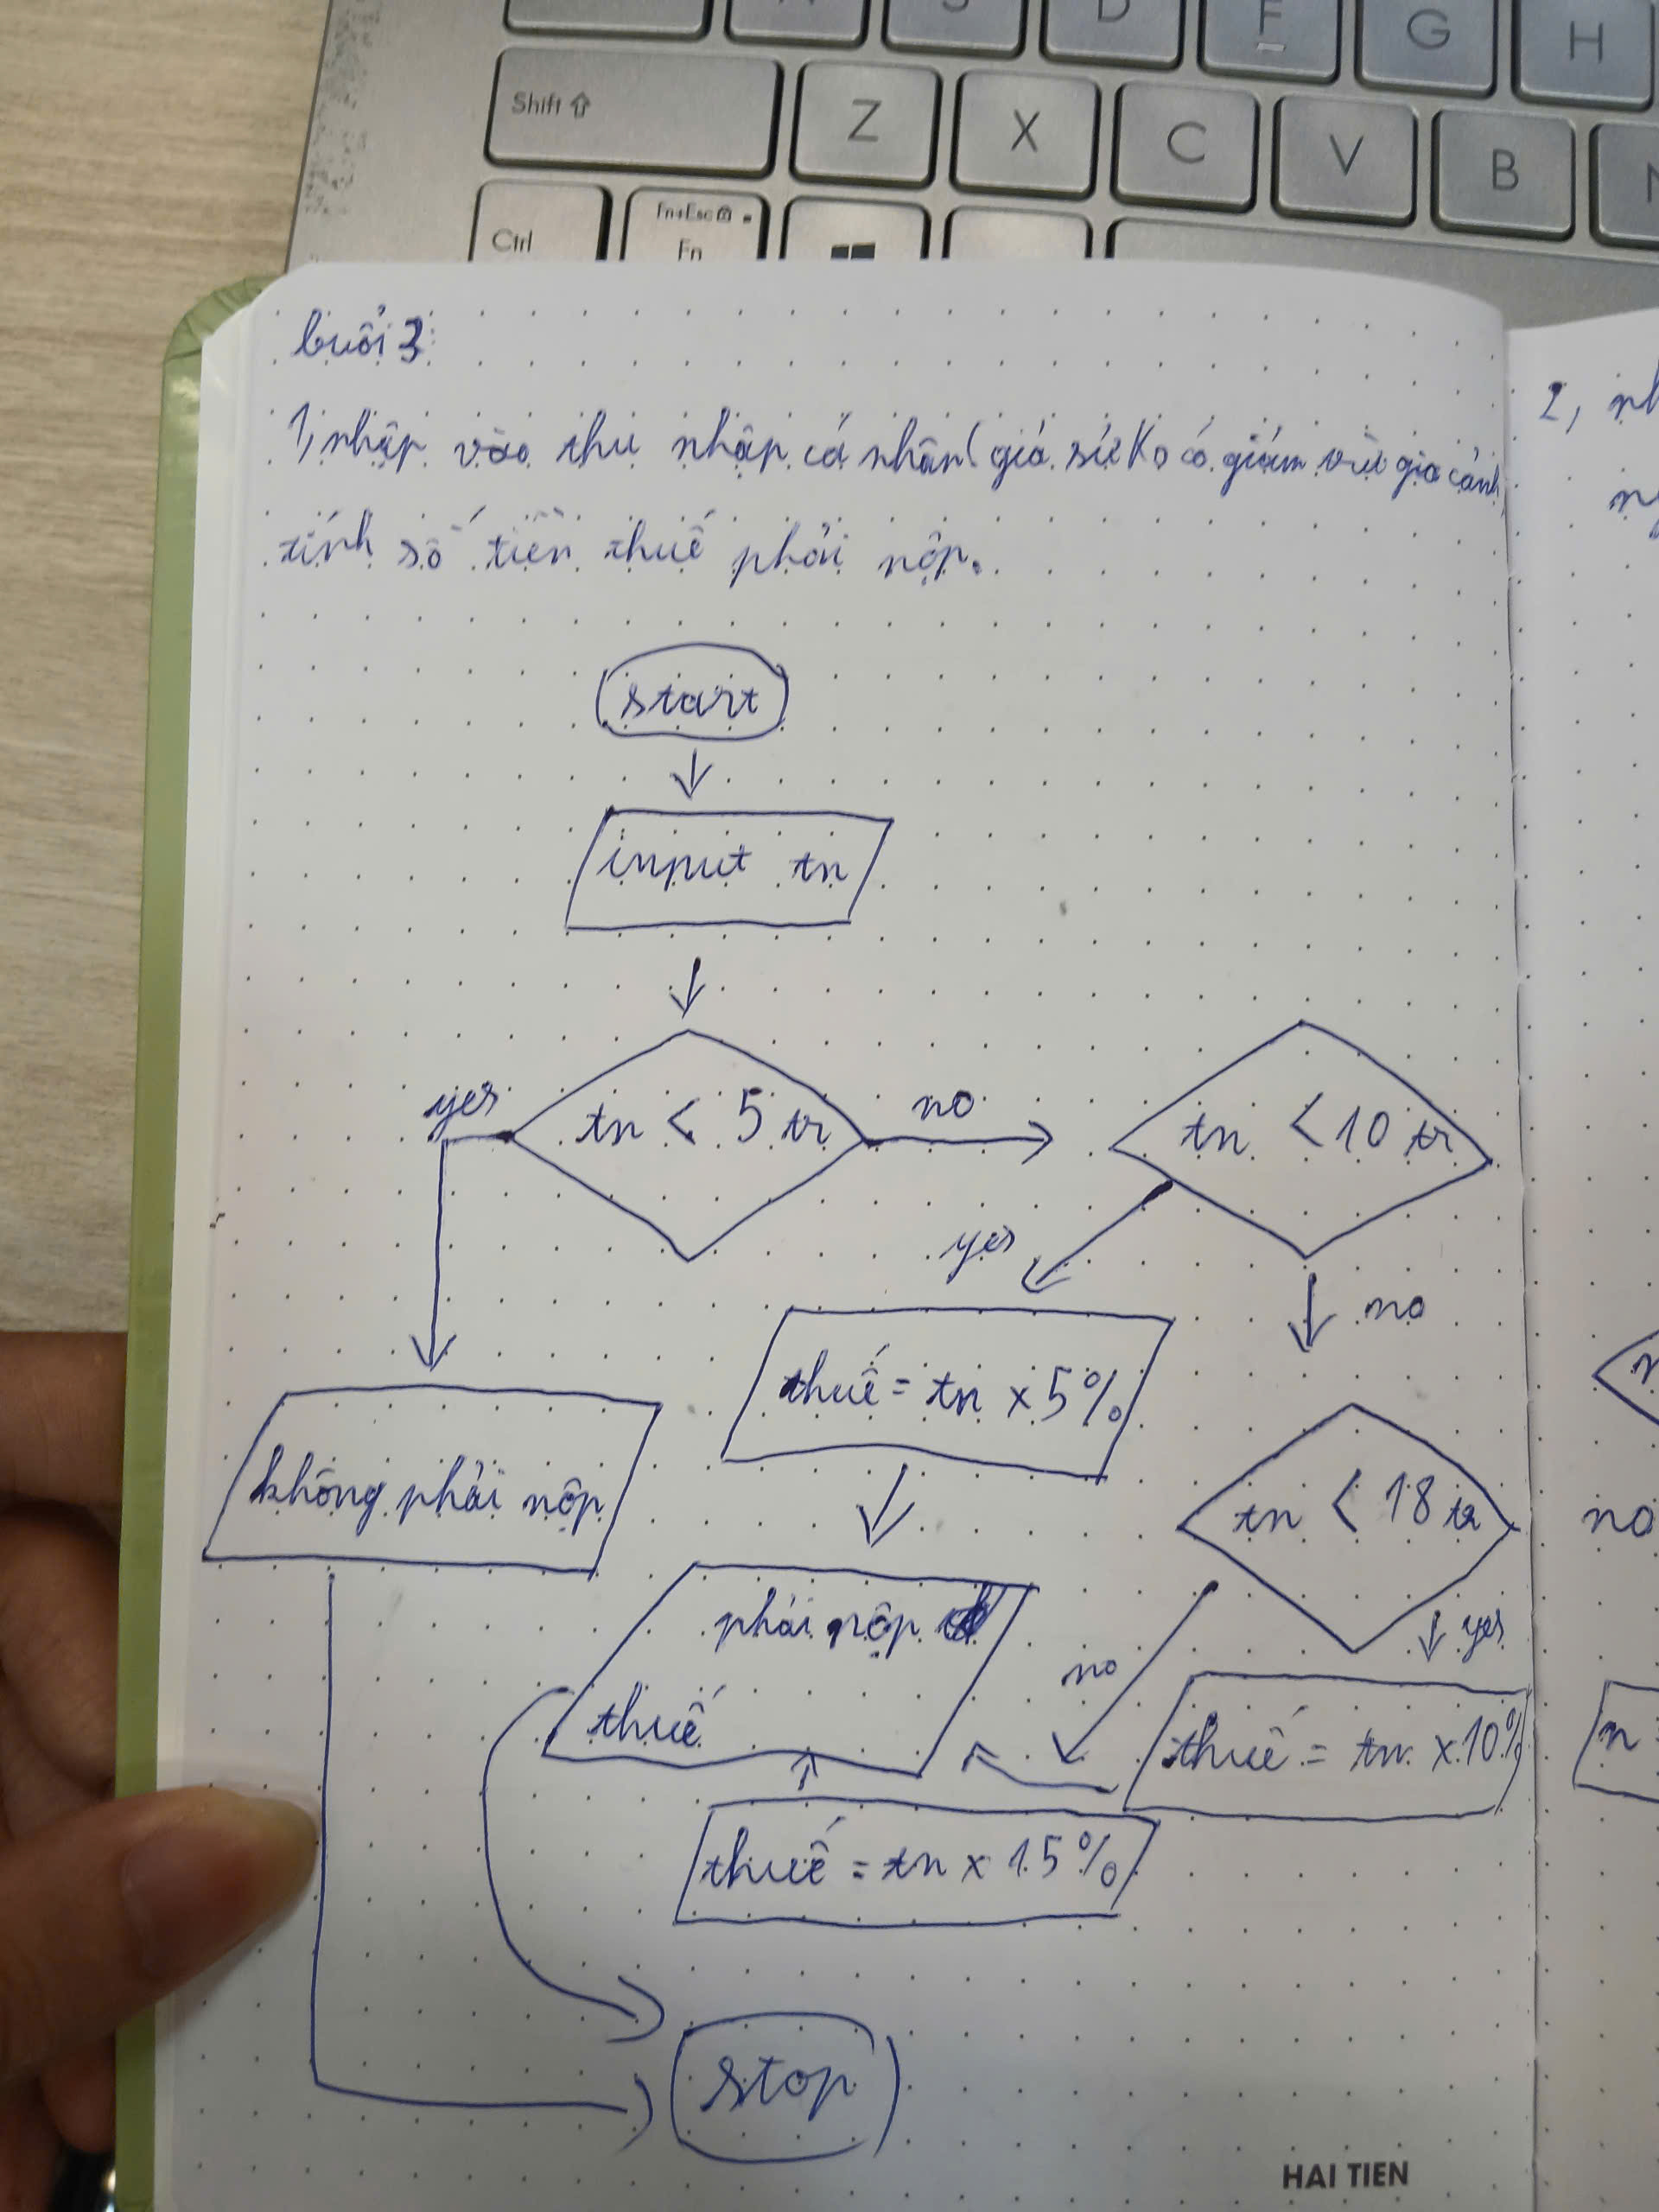 F
G
H
Shift
Z
X
C
V
B
Ctrl
Fn+Esc
Fn
buổi 3:
1, nhập vào thu nhập cá nhân (giả sử Ko có giảm trừ gia cảnh)
tính số tiền thuế phải nộp.
start
input tn
yes
tn < 5 tr
no
tn < 10 tr
yes
no
thuế = tn x 5%
không phải nộp
tn < 18 tr
no
phải nộp
thuế
no
yes
thuế = tn x 10%
thuế = tn x 15%
stop
HAI TIEN
2,